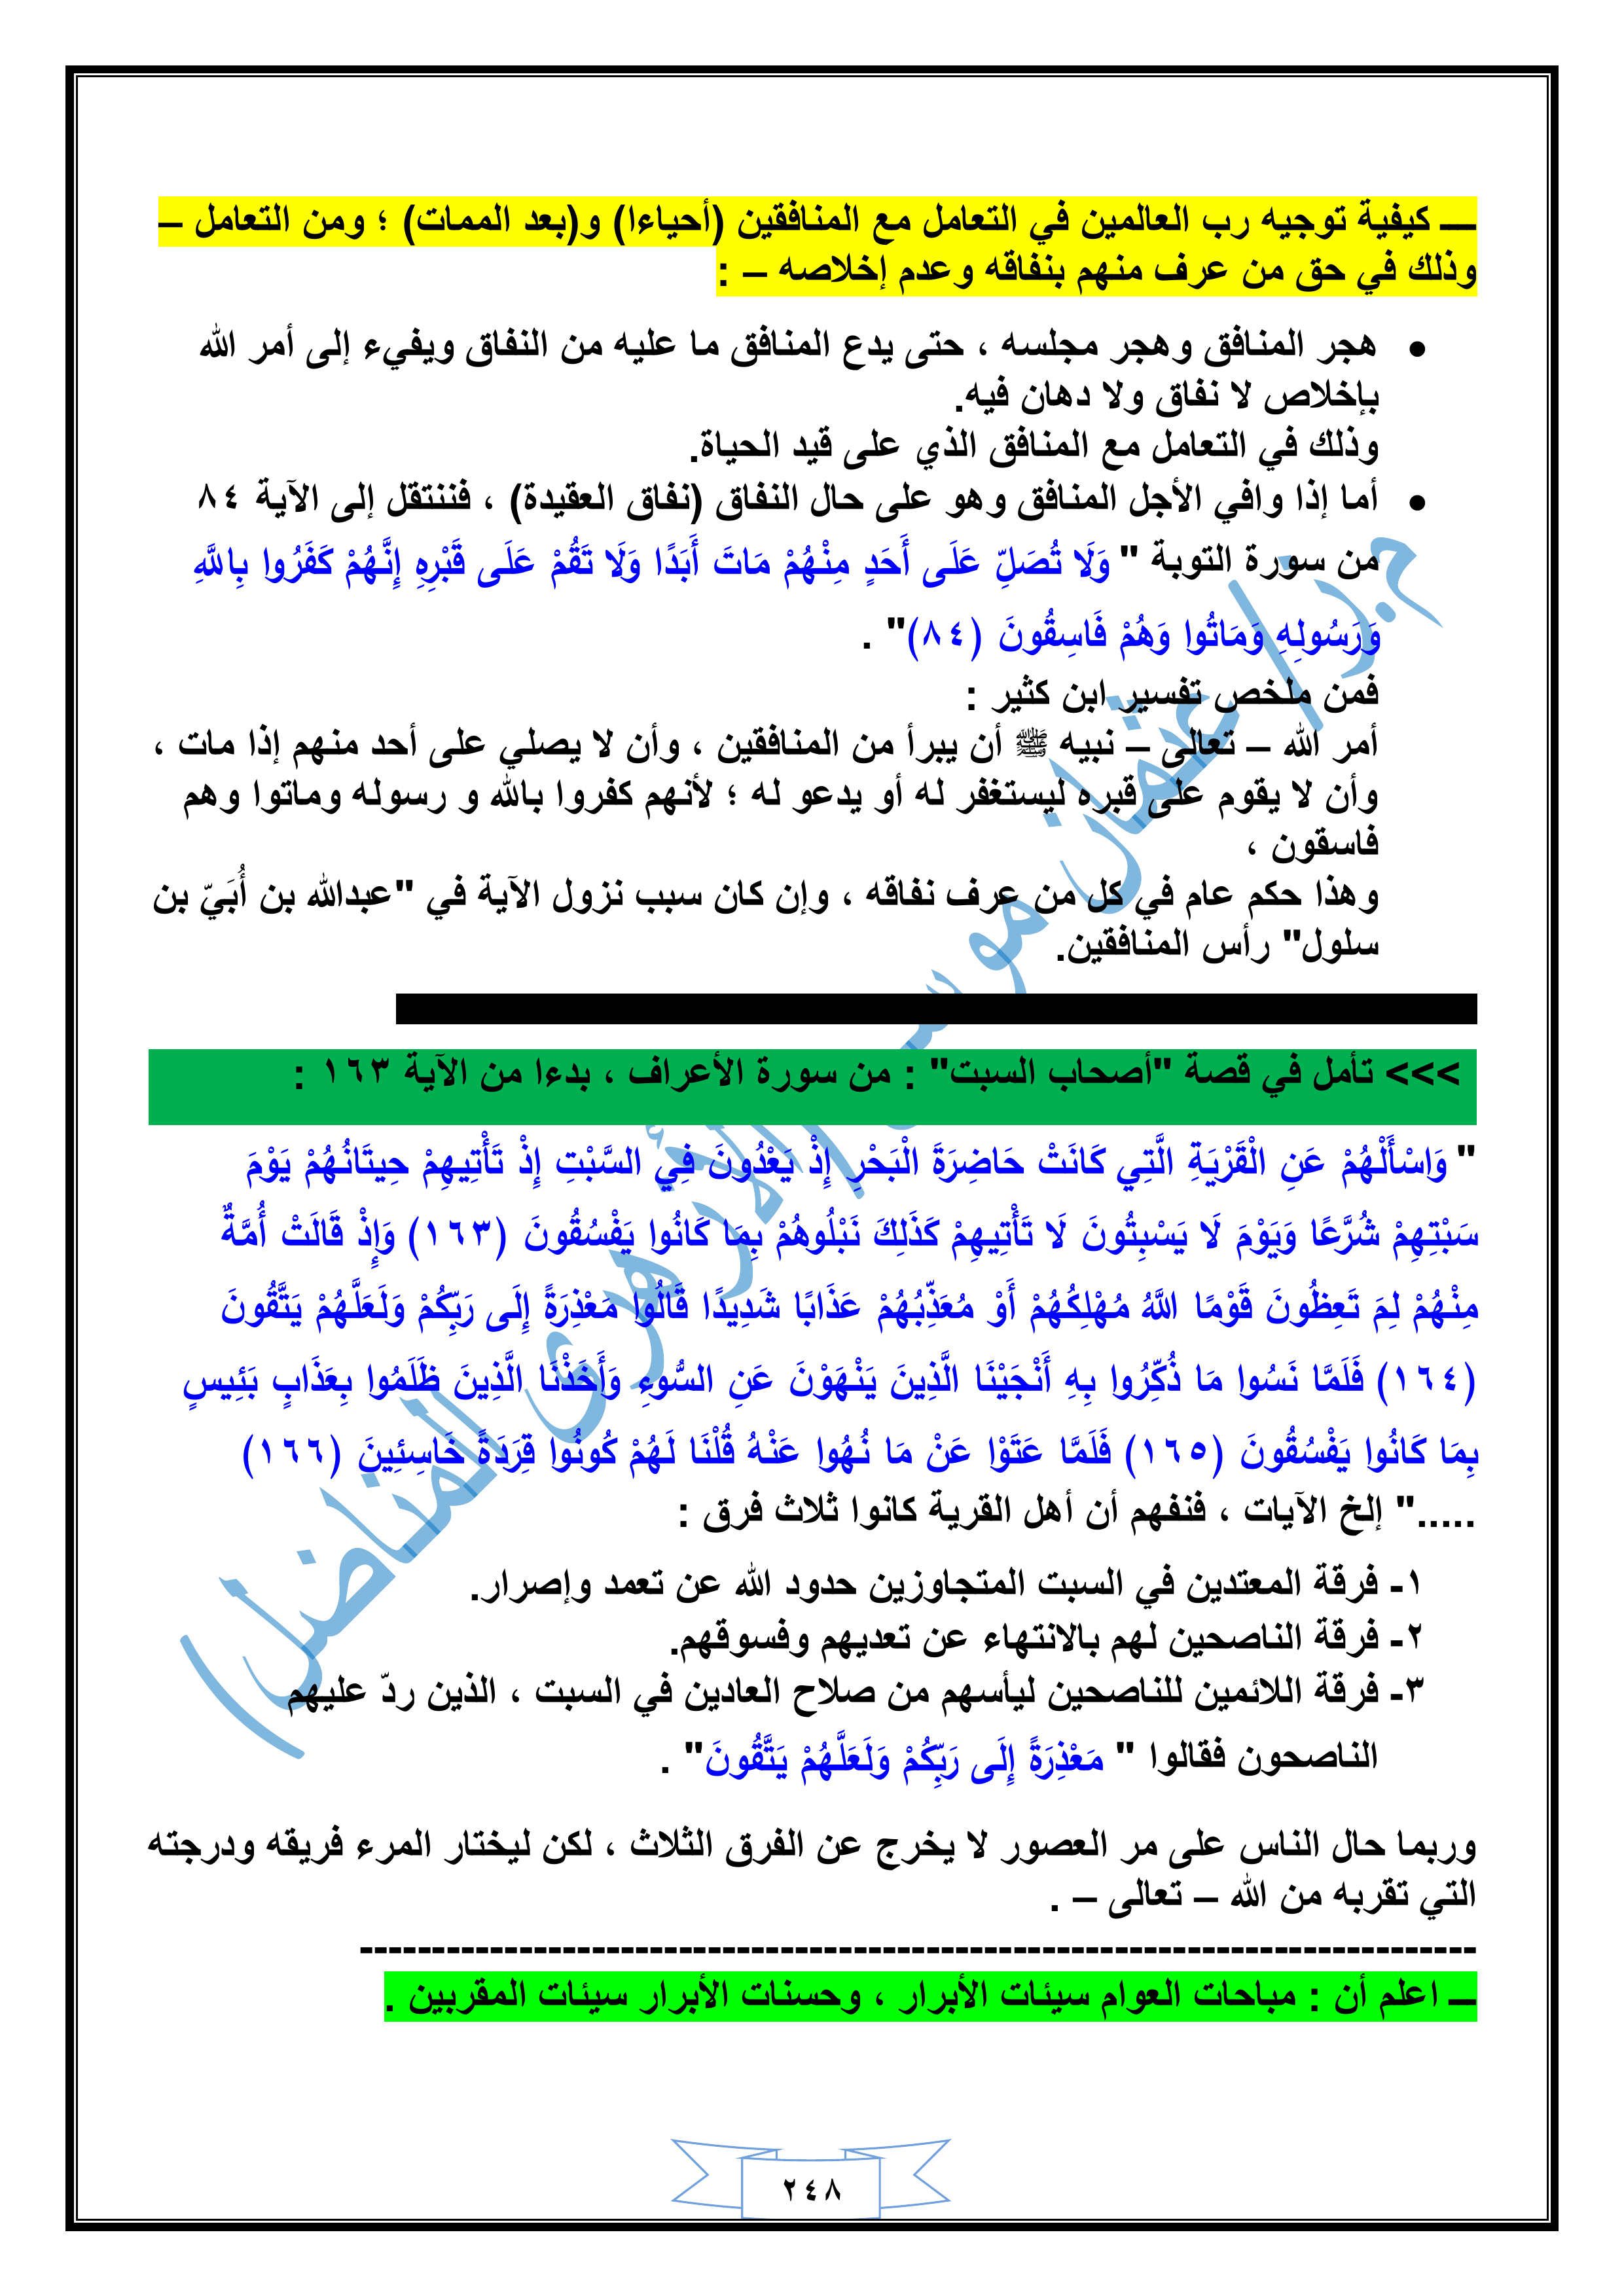 ـــ كيفية توجيه رب العالمين في التعامل مع المنافقين (أحياءا) و(بعد الممات) ؛ ومن التعامل –
وذلك في حق من عرف منهم بنفاقه وعدم إخلاصه – :
• هجر المنافق وهجر مجلسه ، حتى يدع المنافق ما عليه من النفاق ويفيء إلى أمر الله
بإخلاص لا نفاق ولا دهان فيه.
وذلك في التعامل مع المنافق الذي على قيد الحياة.
• أما إذا وافي الأجل المنافق وهو على حال النفاق (نفاق العقيدة) ، فننتقل إلى الآية ٨٤
من سورة التوبة " وَلَا تُصَلِّ عَلَى أَحَدٍ مِنْهُمْ مَاتَ أَبَدًا وَلَا تَقُمْ عَلَى قَبْرِهِ إِنَّهُمْ كَفَرُوا بِاللَّهِ
وَرَسُولِهِ وَمَاتُوا وَهُمْ فَاسِقُونَ (٨٤)" .
فمن ملخص تفسير ابن كثير :
أمر الله – تعالى – نبيه ﷺ أن يبرأ من المنافقين ، وأن لا يصلي على أحد منهم إذا مات ،
وأن لا يقوم على قبره ليستغفر له أو يدعو له ؛ لأنهم كفروا بالله و رسوله وماتوا وهم
فاسقون ،
وهذا حكم عام في كل من عرف نفاقه ، وإن كان سبب نزول الآية في "عبدالله بن أُبَيّ بن
سلول" رأس المنافقين.
>>> تأمل في قصة "أصحاب السبت" : من سورة الأعراف ، بدءا من الآية ١٦٣ :
" وَاسْأَلْهُمْ عَنِ الْقَرْيَةِ الَّتِي كَانَتْ حَاضِرَةَ الْبَحْرِ إِذْ يَعْدُونَ فِي السَّبْتِ إِذْ تَأْتِيهِمْ حِيتَانُهُمْ يَوْمَ
سَبْتِهِمْ شُرَّعًا وَيَوْمَ لَا يَسْبِتُونَ لَا تَأْتِيهِمْ كَذَلِكَ نَبْلُوهُمْ بِمَا كَانُوا يَفْسُقُونَ (١٦٣) وَإِذْ قَالَتْ أُمَّةٌ
مِنْهُمْ لِمَ تَعِظُونَ قَوْمًا اللَّهُ مُهْلِكُهُمْ أَوْ مُعَذِّبُهُمْ عَذَابًا شَدِيدًا قَالُوا مَعْذِرَةً إِلَى رَبِّكُمْ وَلَعَلَّهُمْ يَتَّقُونَ
(١٦٤) فَلَمَّا نَسُوا مَا ذُكِّرُوا بِهِ أَنْجَيْنَا الَّذِينَ يَنْهَوْنَ عَنِ السُّوءِ وَأَخَذْنَا الَّذِينَ ظَلَمُوا بِعَذَابٍ بَئِيسٍ
بِمَا كَانُوا يَفْسُقُونَ (١٦٥) فَلَمَّا عَتَوْا عَنْ مَا نُهُوا عَنْهُ قُلْنَا لَهُمْ كُونُوا قِرَدَةً خَاسِئِينَ (١٦٦)
....." إلخ الآيات ، فنفهم أن أهل القرية كانوا ثلاث فرق :
١- فرقة المعتدين في السبت المتجاوزين حدود الله عن تعمد وإصرار.
٢- فرقة الناصحين لهم بالانتهاء عن تعديهم وفسوقهم.
٣- فرقة اللائمين للناصحين ليأسهم من صلاح العادين في السبت ، الذين ردّ عليهم
الناصحون فقالوا " مَعْذِرَةً إِلَى رَبِّكُمْ وَلَعَلَّهُمْ يَتَّقُونَ" .
وربما حال الناس على مر العصور لا يخرج عن الفرق الثلاث ، لكن ليختار المرء فريقه ودرجته
التي تقربه من الله – تعالى – .
--------------------------------------------------------------------------------
ــ اعلم أن : مباحات العوام سيئات الأبرار ، وحسنات الأبرار سيئات المقربين .
٢٤٨